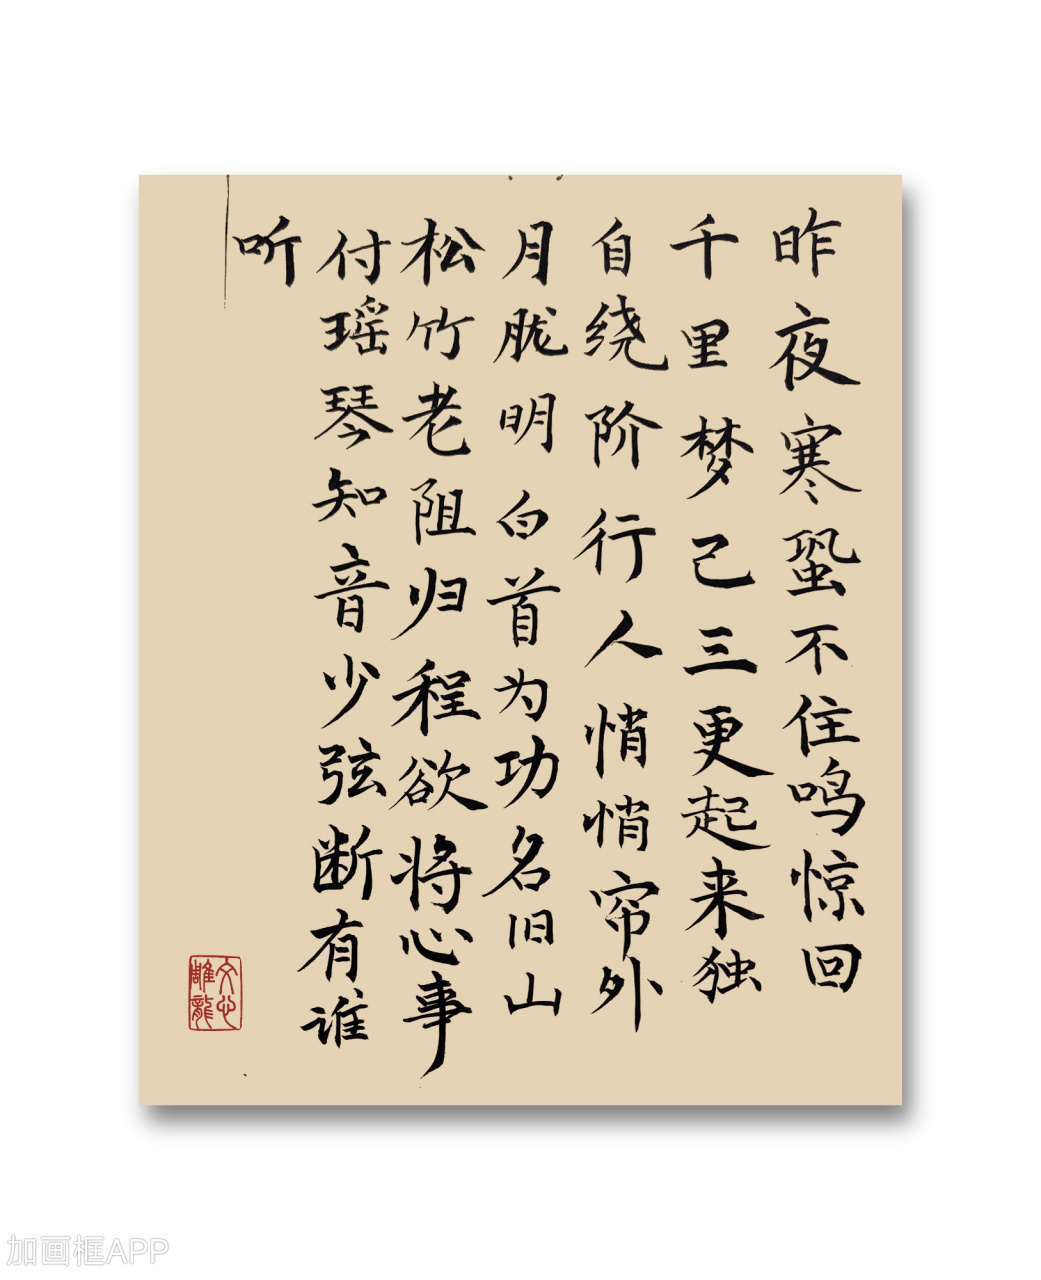 昨夜寒蛩不住鸣惊回
千里梦己三更起来独
自绕阶行人悄悄帘外
月胧明白首为功名旧山
松竹老阻归程欲将心事
付瑶琴知音少弦断有谁
听
文心
雕龍
加画框APP